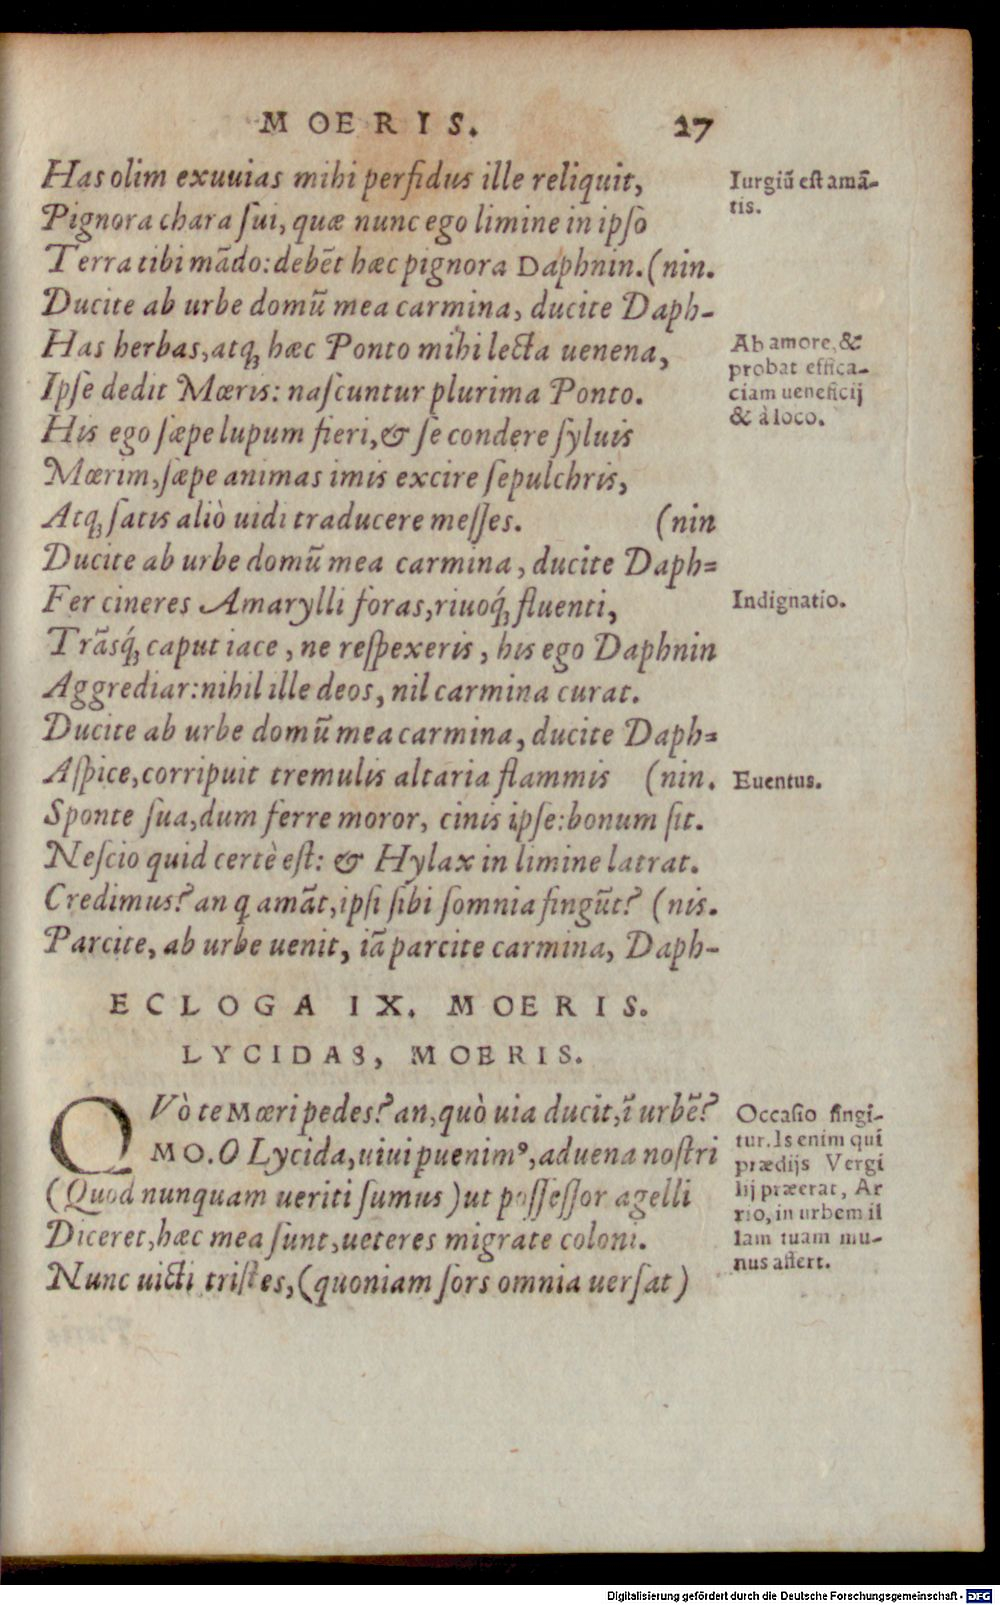 MOERIS. 27
Has olim exuuias mihi perfidus ille reliquit,
Pignora chara sui, quæ nunc ego limine in ipso
Terra tibi mãdo: debẽt hæc pignora Daphnin. (nin.
Ducite ab urbe domũ mea carmina, ducite Daph-
Has herbas, atq; hæc Ponto mihi lecta uenena,
Ipse dedit Mœris: nascuntur plurima Ponto.
His ego sæpe lupum fieri, & se condere syluis
Mœrim, sæpe animas imis excire sepulchris,
Atq; satis aliò uidi traducere messes. (nin
Ducite ab urbe domũ mea carmina, ducite Daph=
Fer cineres Amarylli foras, riuoq́; fluenti,
Trãsq́; caput iace, ne respexeris, his ego Daphnin
Aggrediar: nihil ille deos, nil carmina curat.
Ducite ab urbe domũ mea carmina, ducite Daph=
Aspice, corripuit tremulis altaria flammis (nin.
Sponte sua, dum ferre moror, cinis ipse: bonum sit.
Nescio quid certè est: & Hylax in limine latrat.
Credimus? an q amãt, ipsi sibi somnia fingũt? (nis.
Parcite, ab urbe uenit, iã parcite carmina, Daph-
ECLOGA IX. MOERIS.
LYCIDAS, MOERIS.
QVò te Mœri pedes? an, quò uia ducit, ĩ urbẽ?
MO. O Lycida, uiui puenimꝰ, aduena nostri
(Quod nunquam ueriti sumus) ut possessor agelli
Diceret, hæc mea sunt, ueteres migrate coloni.
Nunc uicti tristes, (quoniam sors omnia uersat)
Iurgiũ est amã-
tis.
Ab amore, &
probat effica-
ciam ueneficij
& à loco.
Indignatio.
Euentus.
Occasio fingi-
tur. Is enim qui
prædijs Vergi
lij præerat, Ar
rio, in urbem il
lam tuam mu-
nus affert.
Digitalisierung gefördert durch die Deutsche Forschungsgemeinschaft - DFG